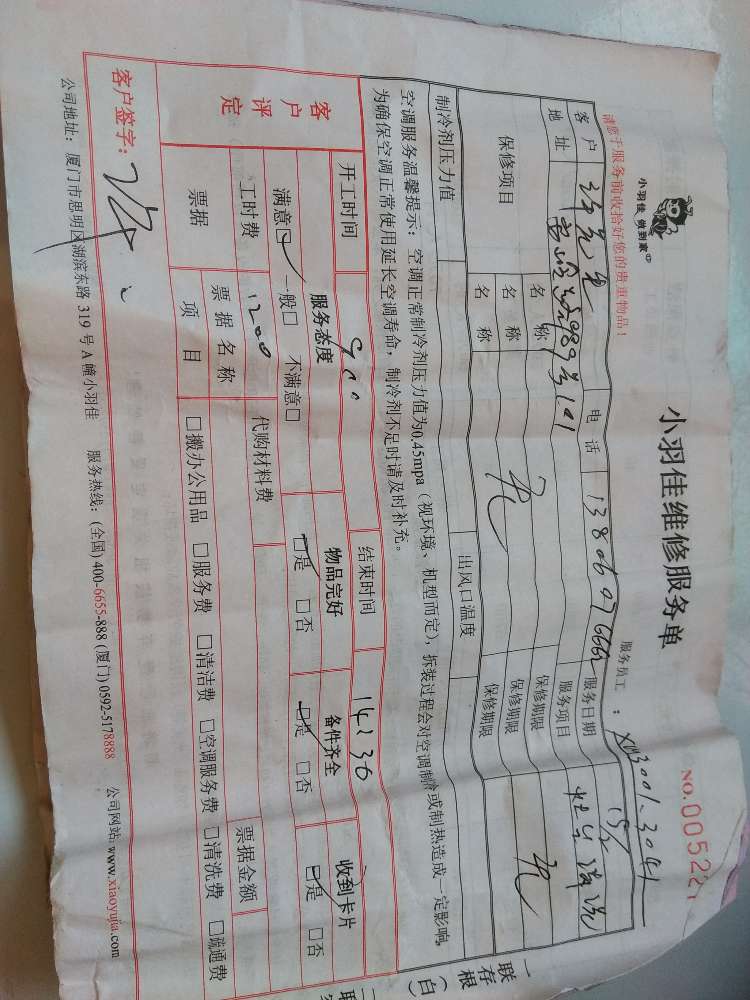 小羽佳 做到家
小羽佳维修服务单
NO.005227
请您于服务前收拾好您的贵重物品！
服务员工：XM3001-3041
客户 电话 13806076662 服务日期
地址 服务项目
保修项目 名称 保修期限
名称 无 保修期限 无
名称 保修期限
制冷剂压力值 出风口温度
空调服务温馨提示：空调正常制冷剂压力值为0.45mpa（视环境、机型而定），拆装过程会对空调制冷或制热造成一定影响，
为确保空调正常使用延长空调寿命，制冷剂不足时请及时补充。
开工时间 9:00 结束时间 14:30
客户评定
服务态度 物品完好 备件齐全 收到卡片
满意□ 一般□ 不满意□ □是 □否 □是 □否 □是 □否
工时费 1200 代购材料费
票据 票据名称 票据金额
项目 □搬办公用品 □服务费 □清洁费 □空调服务费 □清洗费 □疏通费
客户签字：
公司地址：厦门市思明区湖滨东路 319 号 A 幢小羽佳 服务热线：(全国) 400-6655-888 (厦门) 0592-5178888 公司网站: www.xiaoyujia.com
一联存根（白）